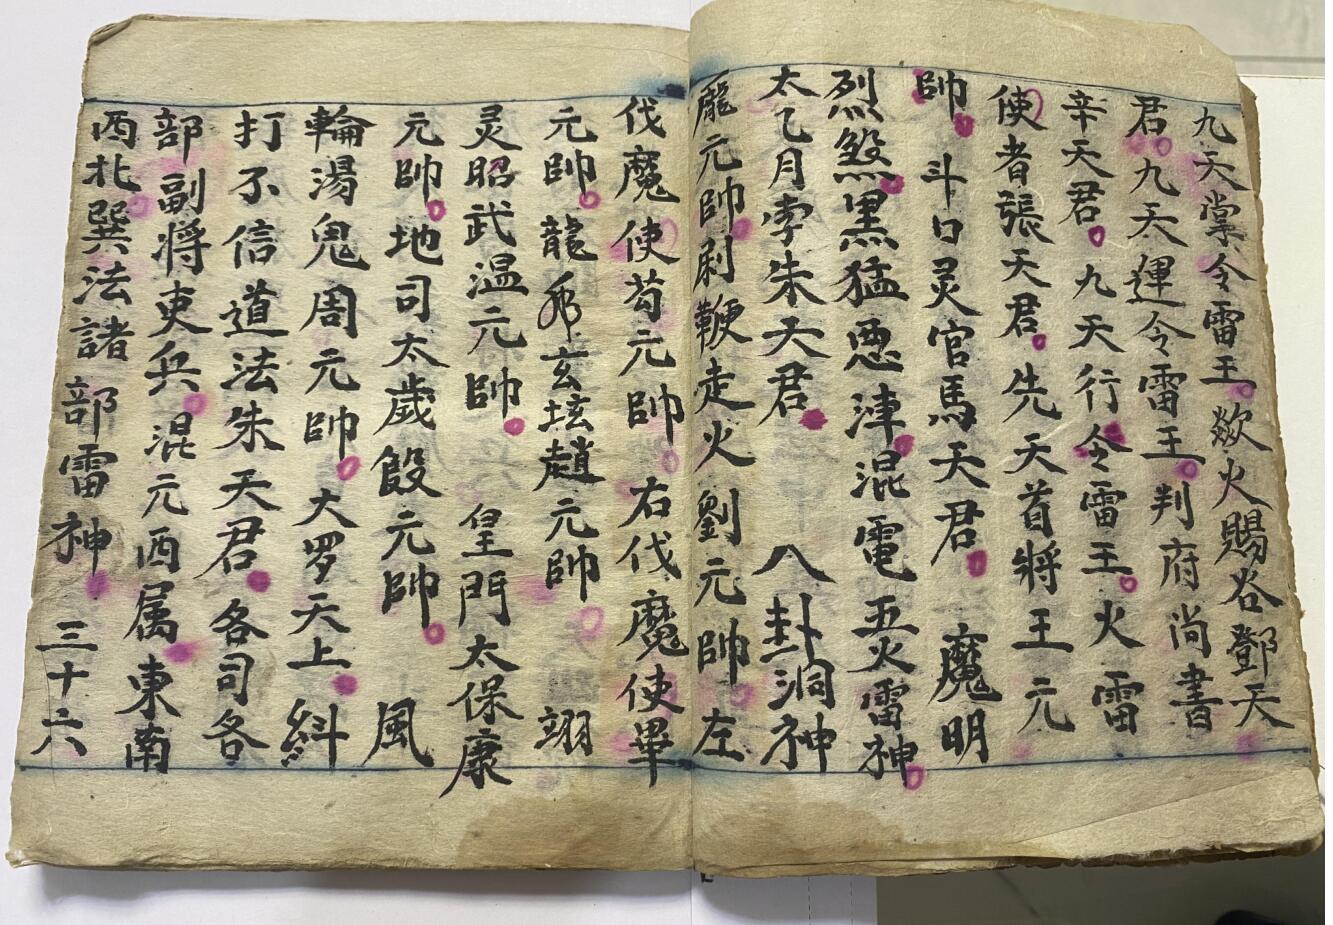 九天掌令雷王欻火賜谷鄧天
君九天運令雷王判府尚書
辛天君九天行令雷王火雷
使者張天君先天首將王元
帥斗口灵官馬天君魔明
烈煞黑猛惡津混電五火雷神
太乙月孛朱天君八卦洞神
龐元帥刷鞭走火劉元帥左
伐魔使苟元帥右伐魔使畢
元帥龍虎玄坛趙元帥翊
灵昭武温元帥皇門太保康
元帥地司太歲殷元帥風
輪湯鬼周元帥大罗天上糾
打不信道法朱天君各司各
部副将吏兵混元西属東南
西北巽法諸部雷神三十六